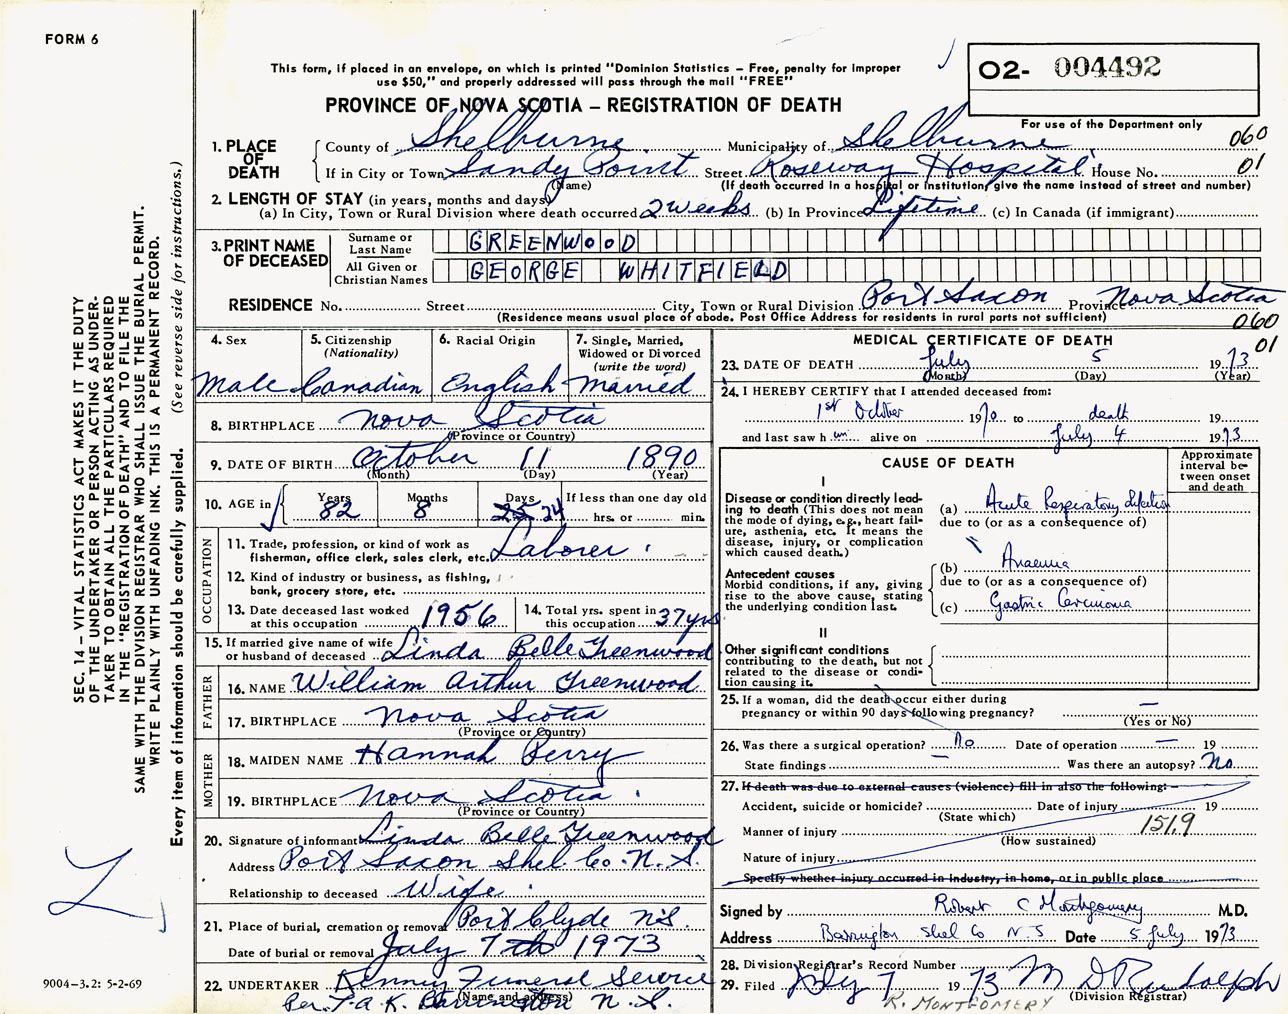 FORM 6
This form, if placed in an envelope, on which is printed "Dominion Statistics – Free, penalty for improper
use $50," and properly addressed will pass through the mail "FREE"
O2- 004492
PROVINCE OF NOVA SCOTIA – REGISTRATION OF DEATH
For use of the Department only
060
01
1. PLACE OF DEATH
County of Shelburne Municipality of Shelburne
If in City or Town Sandy Point Street Roseway Hospital House No.
(Name) (If death occurred in a hospital or institution, give the name instead of street and number)
2. LENGTH OF STAY (in years, months and days)
(a) In City, Town or Rural Division where death occurred 2 weeks (b) In Province Lifetime (c) In Canada (if immigrant)
3. PRINT NAME OF DECEASED
Surname or Last Name GREENWOOD
All Given or Christian Names GEORGE WHITFIELD
RESIDENCE No. Street City, Town or Rural Division Port Saxon Province Nova Scotia
(Residence means usual place of abode. Post Office Address for residents in rural parts not sufficient)
060
01
4. Sex 5. Citizenship (Nationality) 6. Racial Origin 7. Single, Married, Widowed or Divorced (write the word)
Male Canadian English Married
8. BIRTHPLACE Nova Scotia
(Province or Country)
9. DATE OF BIRTH October 11 1890
(Month) (Day) (Year)
10. AGE in Years Months Days If less than one day old
82 8 25 24 hrs. or min.
OCCUPATION
11. Trade, profession, or kind of work as
fisherman, office clerk, sales clerk, etc. Laborer
12. Kind of industry or business, as fishing,
bank, grocery store, etc.
13. Date deceased last worked
at this occupation 1956
14. Total yrs. spent in
this occupation 37 yrs
15. If married give name of wife
or husband of deceased Linda Belle Greenwood
FATHER
16. NAME William Arthur Greenwood
17. BIRTHPLACE Nova Scotia
(Province or Country)
MOTHER
18. MAIDEN NAME Hannah Perry
19. BIRTHPLACE Nova Scotia
(Province or Country)
20. Signature of informant Linda Belle Greenwood
Address Port Saxon Shel. Co. N.S.
Relationship to deceased Wife
21. Place of burial, cremation or removal Port Clyde N.S.
Date of burial or removal July 7th 1973
22. UNDERTAKER Kenny Funeral Service
(Name and address)
Barrington N.S.
MEDICAL CERTIFICATE OF DEATH
23. DATE OF DEATH July 5 1973
(Month) (Day) (Year)
24. I HEREBY CERTIFY that I attended deceased from:
1st October 1970 to death 19
and last saw h im alive on July 4 1973
CAUSE OF DEATH
Approximate interval between onset and death
I
Disease or condition directly lead-
ing to death (This does not mean
the mode of dying, e.g., heart fail-
ure, asthenia, etc. It means the
disease, injury, or complication
which caused death.)
(a) Acute Respiratory Infection
due to (or as a consequence of)
Antecedent causes
Morbid conditions, if any, giving
rise to the above cause, stating
the underlying condition last.
(b) Anaemia
due to (or as a consequence of)
(c) Gastric Carcinoma
II
Other significant conditions
contributing to the death, but not
related to the disease or condi-
tion causing it.
25. If a woman, did the death occur either during
pregnancy or within 90 days following pregnancy? —
(Yes or No)
26. Was there a surgical operation? No Date of operation — 19
State findings — Was there an autopsy? No
27. If death was due to external causes (violence) fill in also the following:
Accident, suicide or homicide? Date of injury 19
(State which)
Manner of injury 151.9
(How sustained)
Nature of injury
Specify whether injury occurred in industry, in home, or in public place
Signed by Robert C Montgomery M.D.
Address Barrington Shel Co N.S Date 5 July 1973
28. Division Registrar's Record Number
29. Filed July 7 1973 M D Rudolph
(Division Registrar)
R. MONTGOMERY
SEC. 14 – VITAL STATISTICS ACT MAKES IT THE DUTY
OF THE UNDERTAKER OR PERSON ACTING AS UNDER-
TAKER TO OBTAIN ALL THE PARTICULARS REQUIRED
IN THE "REGISTRATION OF DEATH" AND TO FILE THE
SAME WITH THE DIVISION REGISTRAR WHO SHALL ISSUE THE BURIAL PERMIT.
WRITE PLAINLY WITH UNFADING INK. THIS IS A PERMANENT RECORD.
Every item of information should be carefully supplied. (See reverse side for instructions.)
9004-3.2: 5-2-69